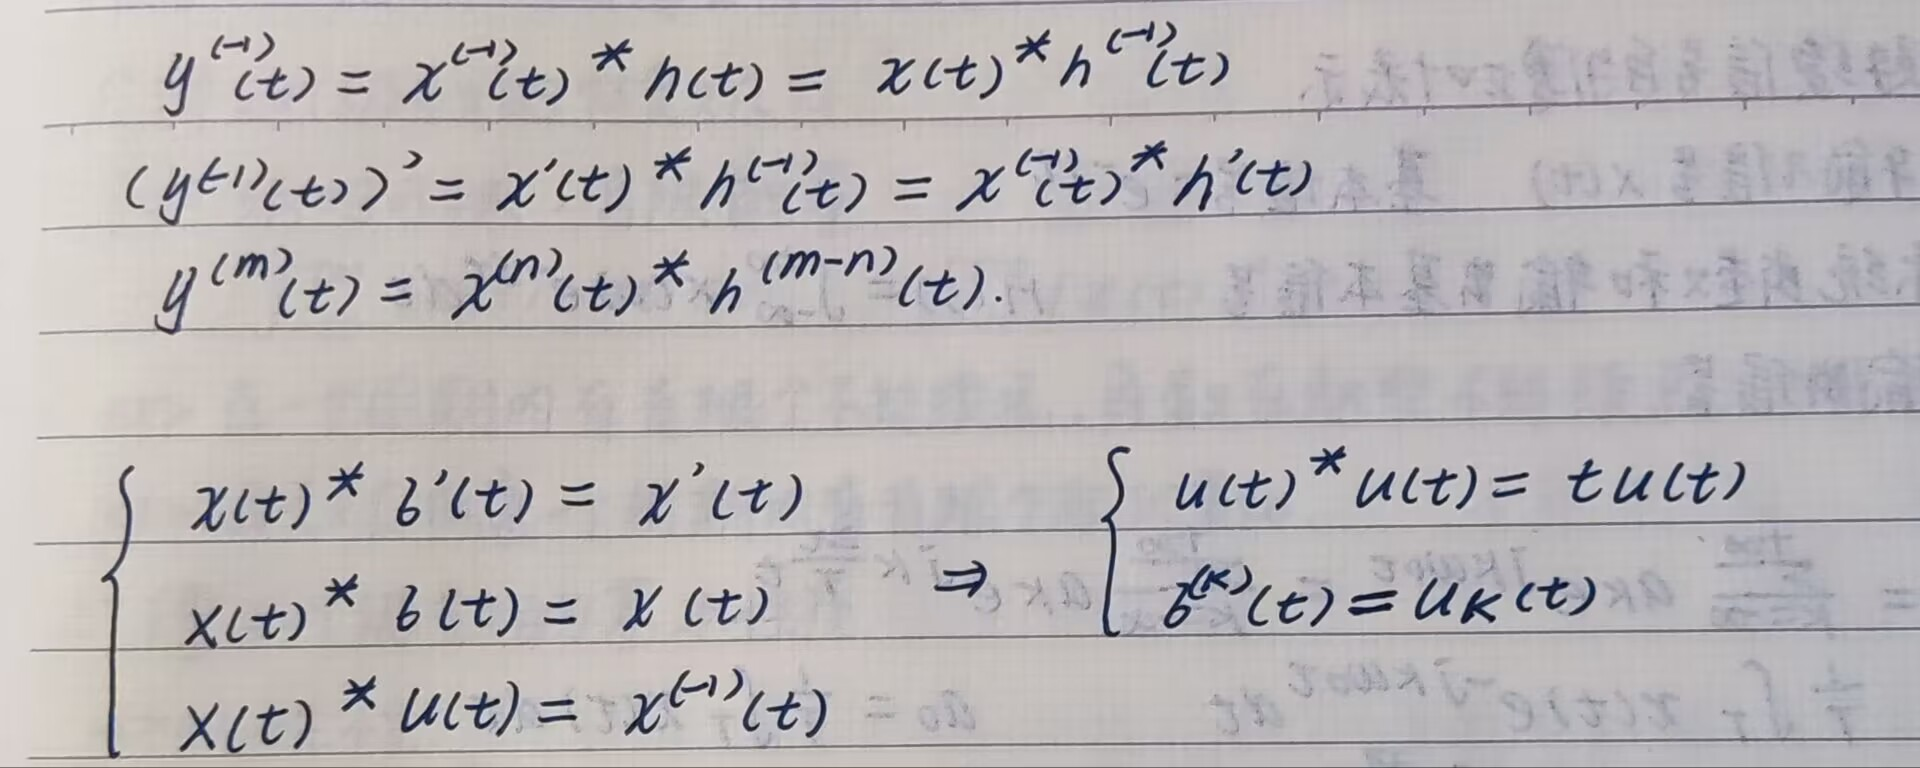 y^(-1)(t) = x^(-1)(t) * h(t) = x(t) * h^(-1)(t)
(y^(-1)(t))' = x'(t) * h^(-1)(t) = x^(-1)(t) * h'(t)
y^(m)(t) = x^(n)(t) * h^(m-n)(t).
x(t) * δ'(t) = x'(t)
x(t) * δ(t) = x(t)
x(t) * u(t) = x^(-1)(t)
⇒
u(t) * u(t) = tu(t)
δ^(k)(t) = u_k(t)